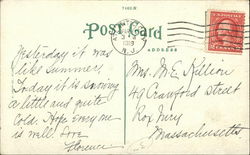 Post Card
ADDRESS
N.J.
Yesterday it was
like Summer,
Today it is snowing
a little and quite
Cold. Hope every one
is well. Love
Florence
Mrs. M. E. Killion
49 Crawford Street
Roxbury
Massachusetts